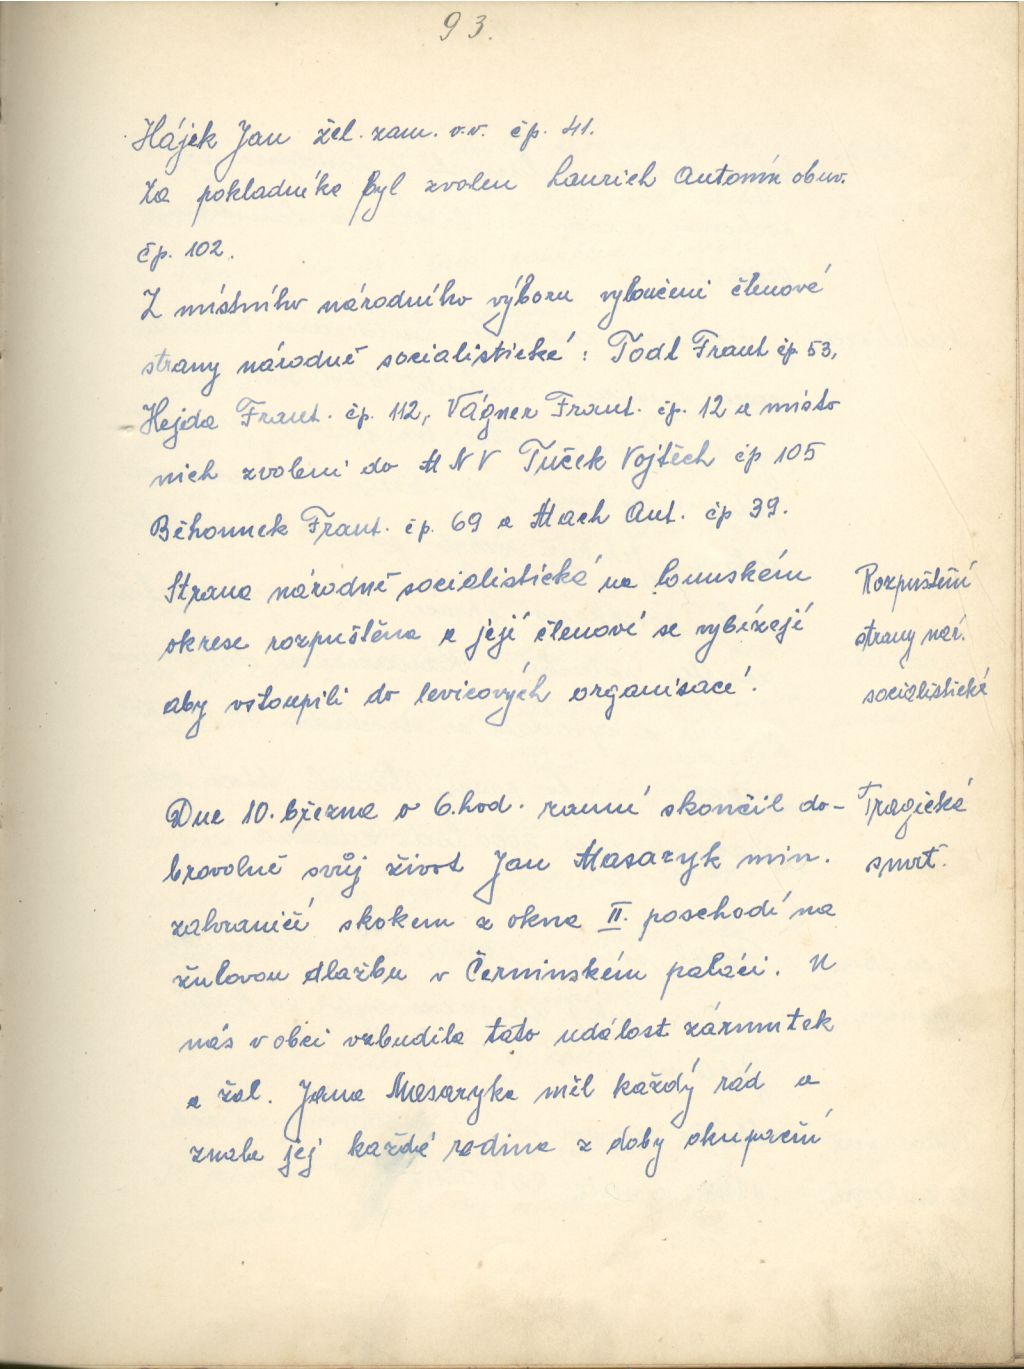 93.
Hájek Jan žel. zam. v.v. čp. 41.
Za pokladníka byl zvolen Laurich Antonín obuv.
čp. 102.
Z místního národního výboru vyloučeni členové
strany národně socialistické: Todl Frant čp. 53,
Hejda Frant. čp. 112, Vágner Frant. čp. 12 a místo
nich zvoleni do MNV Tuček Vojtěch čp 105
Běhounek Frant. čp. 69 a Mach Ant. čp 39.
Strana národně socialistická na lounském
okrese rozpuštěna a její členové se vybízejí
aby vstoupili do levicových organisací.
Rozpuštění
strany nár.
socialistické
Dne 10. března v 6. hod. ranní skončil do-
brovolně svůj život Jan Masaryk min.
zahraničí skokem z okna II. poschodí na
žulovou dlažbu v Černínském paláci. U
nás v obci vzbudila tato událost zármutek
a žal. Jana Masaryka měl každý rád a
znala jej každá rodina z doby okupační
Tragická
smrt.